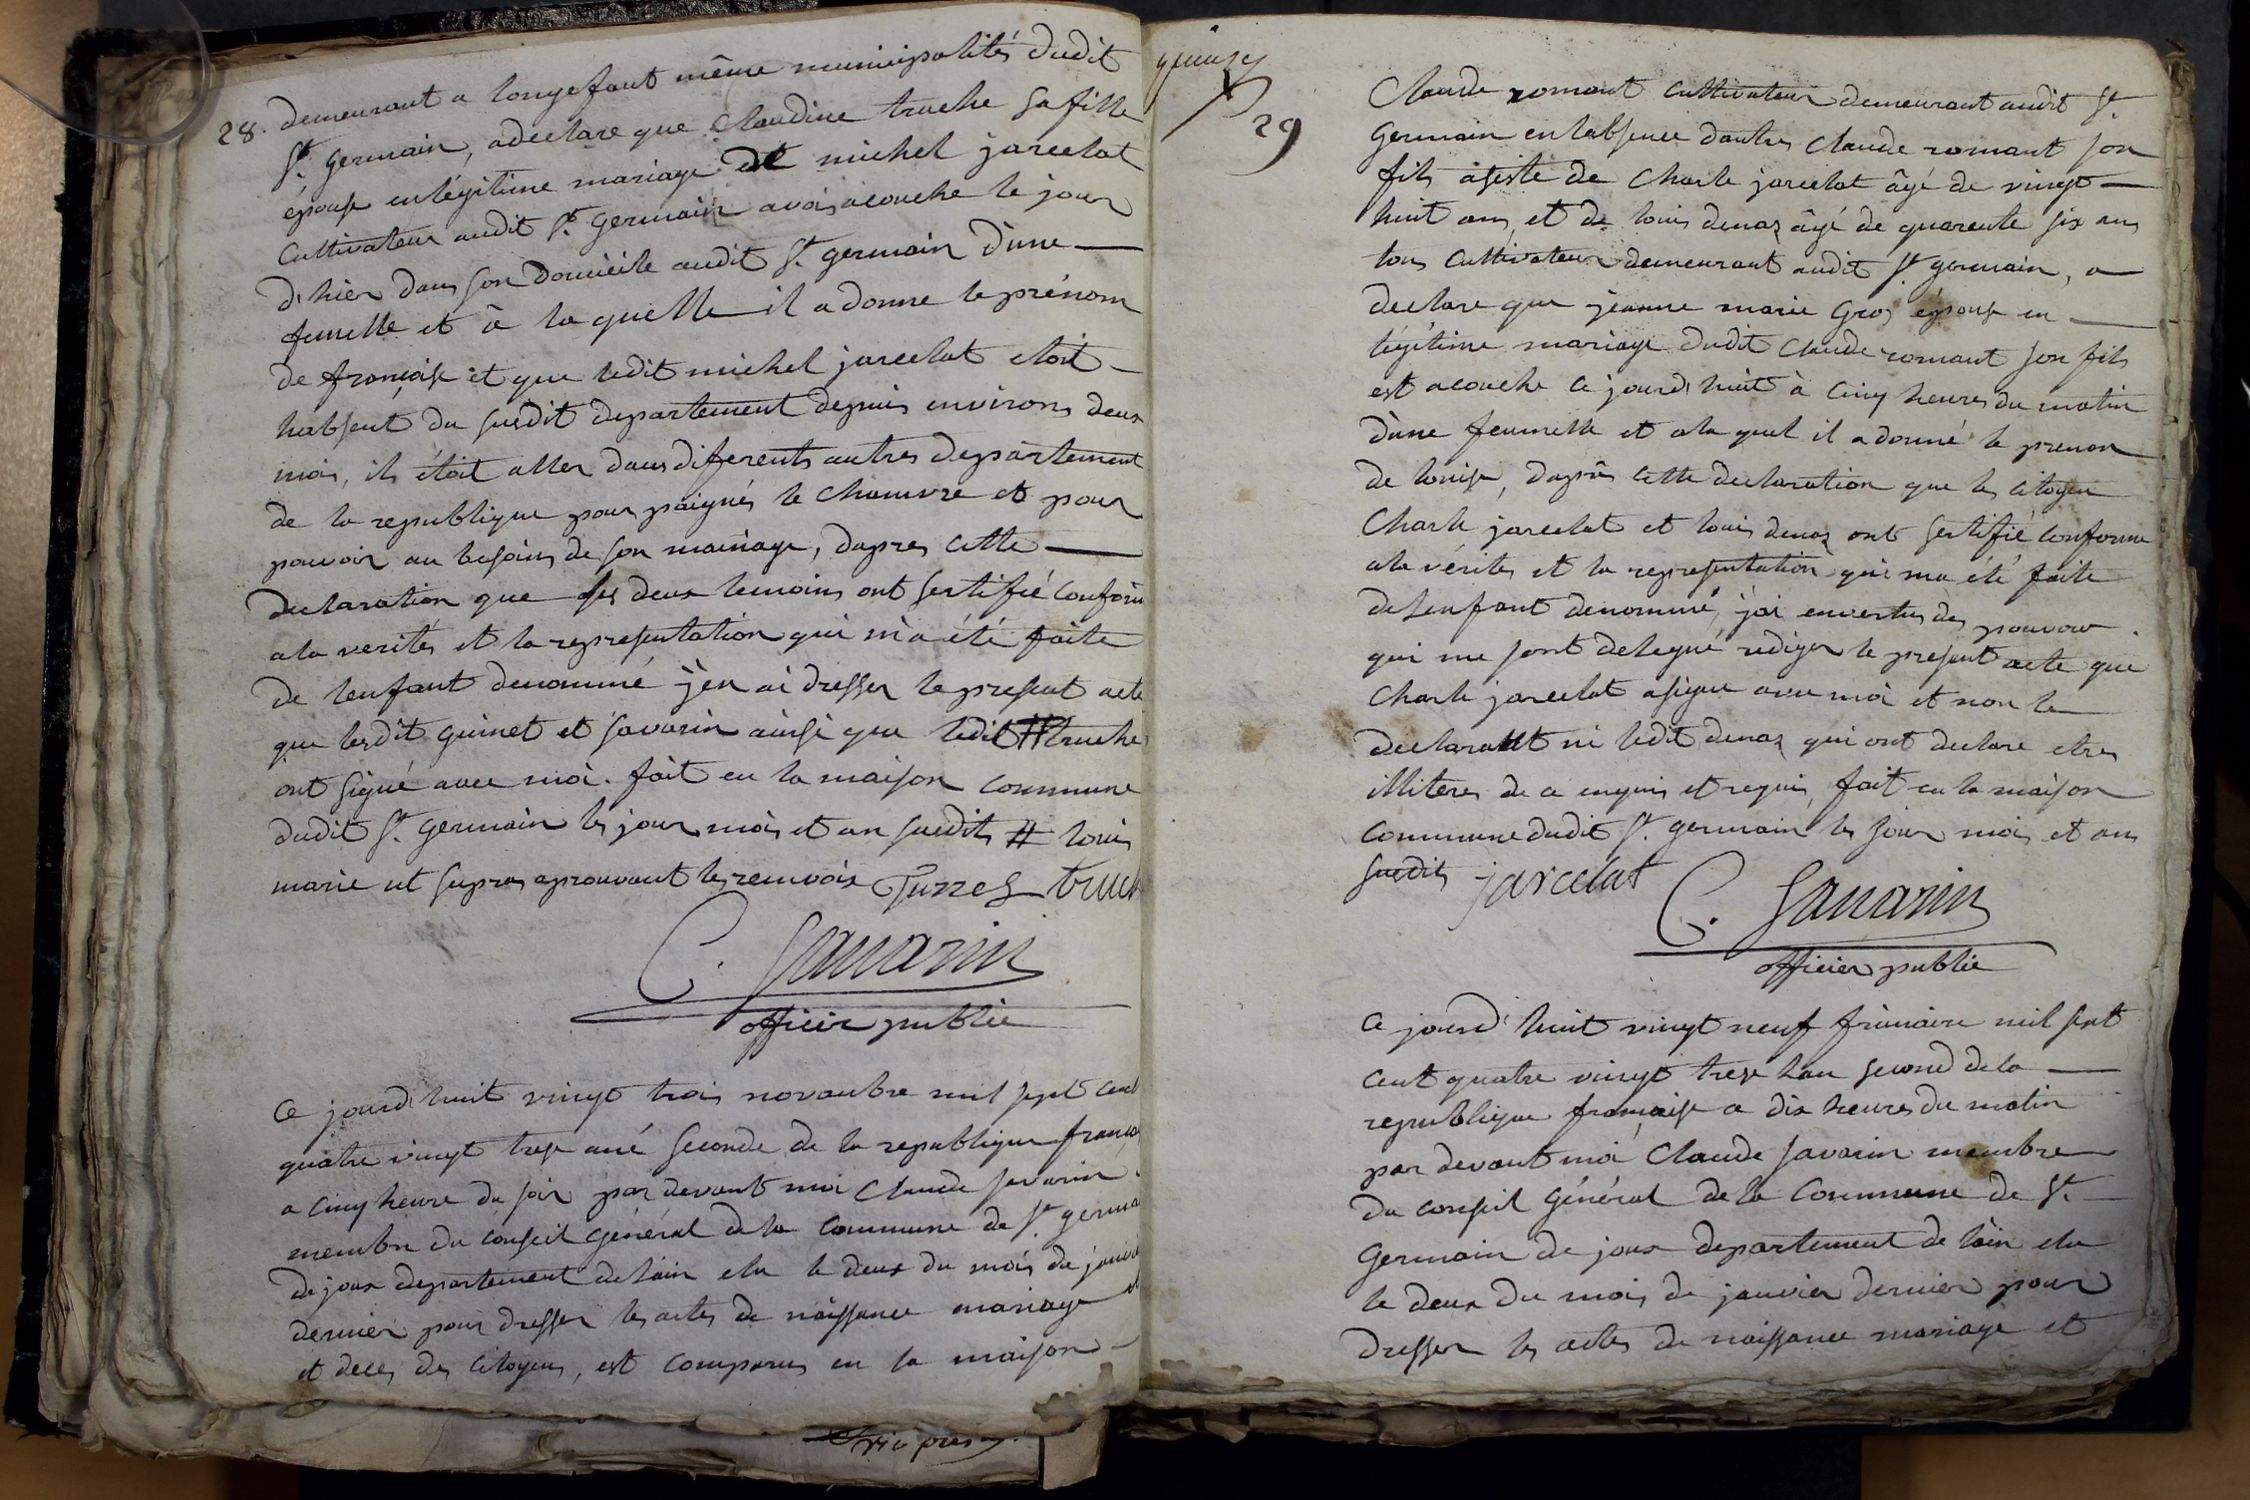 28. demeurant a longefant même municipalités dudit
St. germain, a declare que Claudine truche sa fille
épouse en légitime mariage de michel jarcelat
Cultivateur audit St. germain avois acouche le jour
d'hier dans son domicile audit St. germain d'une
femelle et à la quelle il a donne le prénom
de françoise et que ledit michel jarcelat etoit
habsent du susdit departement depuis environs deux
mois, ils étoit aller dans diferents autres departement
de la republique pour paignés le chamvre et pour
pouvoir au besoins de son mainage, dapres cette
declaration que ses deux temoins ont sertifié conform
a la verités et la representation qui m'a été faite
de lenfant denommé j'en ai dresser le present acte
que lesdit guinet et savarin ainsi que ledit # truche
ont signé avec moi. fait en la maison commune
dudit St. germain les jour mois et an susdits # louis
marie ut supra aprouvant les renvois truch
C. Savarin
officier public
Ce jourd'huit vingt trois novambre mil sept cent
quatre vingt trese ané seconde de la republique françai
a cinq heure du soir par devant moi Claude savarin
membre du conseil général de la commune de St germa
de joux departement de lain elu le deux du mois de janvié
dernier pour dresser les actes de naissance mariage et
et deces des citoyens, est comparus en la maison
29
Claude romant cultivateur demeurant audit St
germain en labsence dautres Claude romant son
fils asisté de Charle jarcelat âgé de vingt
huit ans, et de louis denaz âgé de quarente six ans
tous cultivateur demeurant audit St germain, a
declare que jeanne marie Gros épouse en
légitime mariage dudit Claude romant son fils
est acouche ce jourd'huit à cinq heures du matin
d'une feumelle et a la quel il a donné le prenon
de louise, daprès cette declaration que les citoyen
Charle jarcelat et louis denaz ont sertifié conforme
a la vérités et la representation qui ma été faite
de lenfant denommé, j'ai envertus des pouvoir
qui me sont delegué rediger le present acte que
Charle jarcelat a signe avec moi et non le
declarant ni ledit denaz qui ont declare etres
illiteres de ce enquis et requis, fait en la maison
commune dudit St. germain les jour mois et an
susdits jarcelat
C. Savarin
officier public
Ce jourd'huit vingt neuf frimaire mil sept
cent quatre vingt trese lan second de la
republique française a dix heures du matin
par devant moi Claude savarin membre
du conseil général de la Commune de St.
Germain de joux departement de lain elu
le deux du mois de janvier dernier pour
dresser les actes de naissance mariage et